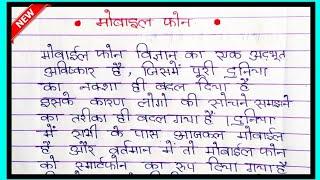 NEW
मोबाईल फोन
मोबाईल फोन विज्ञान का एक अदभूत
अविष्कार है, जिसमें पूरी दुनिया
का नक्शा ही बदल दिया है
इसके कारण लोगों की सोचने समझने
का तरीका ही बदल गया है। दुनिया
में सभी के पास आजकल मोबाईल
है और वर्तमान में तो मोबाईल फोन
को स्मार्टफोन का रूप दिया गया है